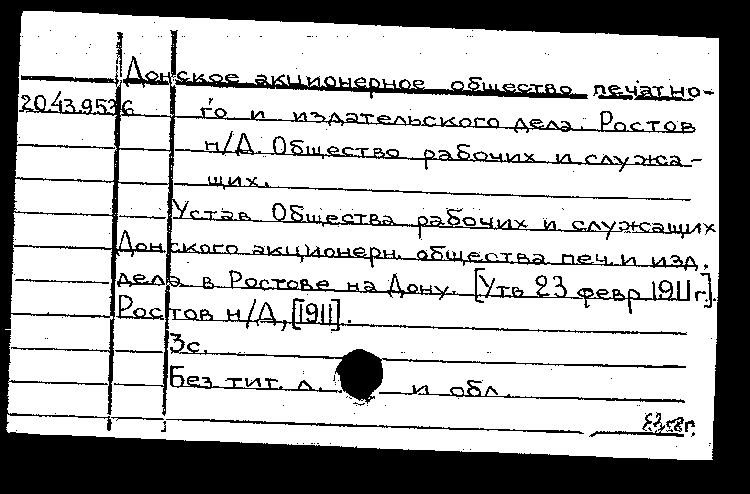 Донское акционерное общество печатно-
20.43.9536 го и издательского дела. Ростов
н/Д. Общество рабочих и служа-
щих.
Устав Общества рабочих и служащих
Донского акционерн. общества печ. и изд.
дела в Ростове на Дону. [Утв 23 февр 1911 г].
Ростов н/Д, [1911].
3с.
Без тит. л. и обл.